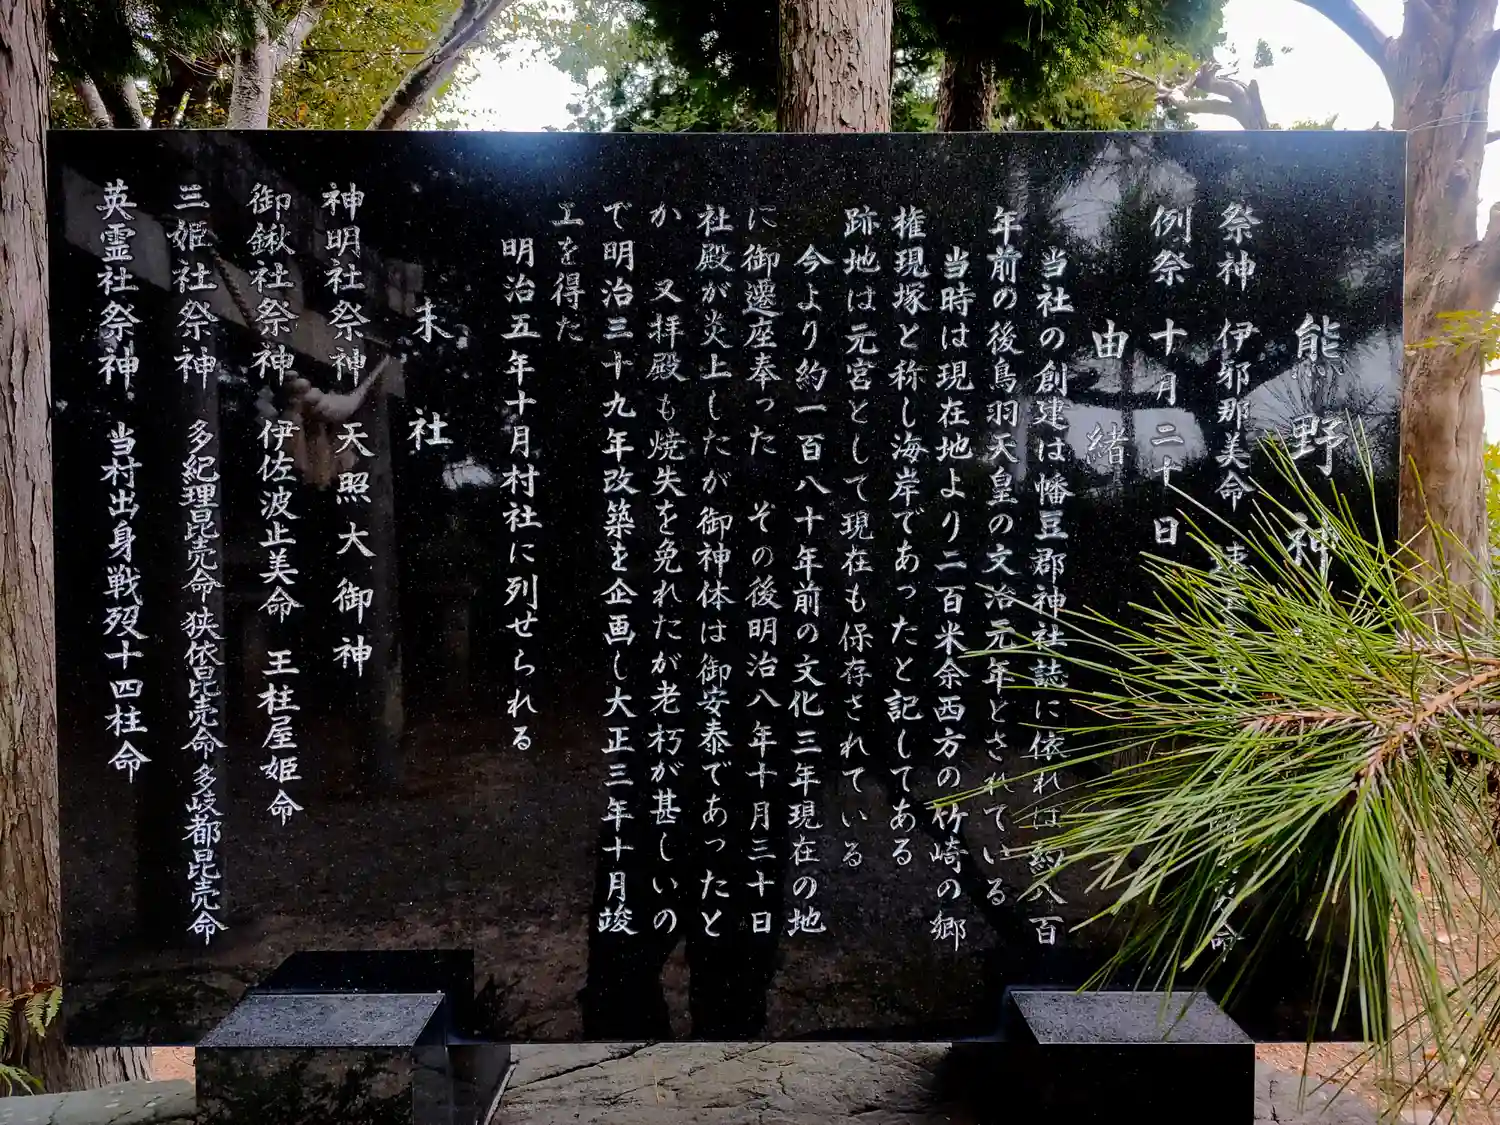 熊野神
祭神 伊邪那美命
例祭 十月二十日
由緒
当社の創建は幡豆郡神社誌に依れば約八百
年前の後鳥羽天皇の文治元年とされている
当時は現在地より二百米余西方の竹崎の郷
権現塚と称し海岸であったと記してある
跡地は元宮として現在も保存されている
今より約一百八十年前の文化三年現在の地
に御遷座奉った その後明治八年十月三十日
社殿が炎上したが御神体は御安泰であったと
か 又拝殿も焼失を免れたが老朽が甚しいの
で明治三十九年改築を企画し大正三年十月竣
工を得た
明治五年十月村社に列せられる
末社
神明社祭神 天照大御神
御鍬社祭神 伊佐波止美命 玉柱屋姫命
三姫社祭神 多紀理毘売命 狭依毘売命 多岐都毘売命
英霊社祭神 当村出身戦歿十四柱命